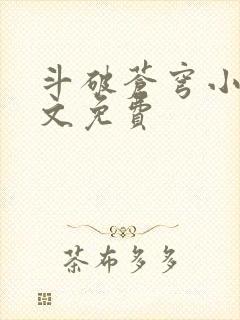 斗破苍穹小
文免費
茶布多多